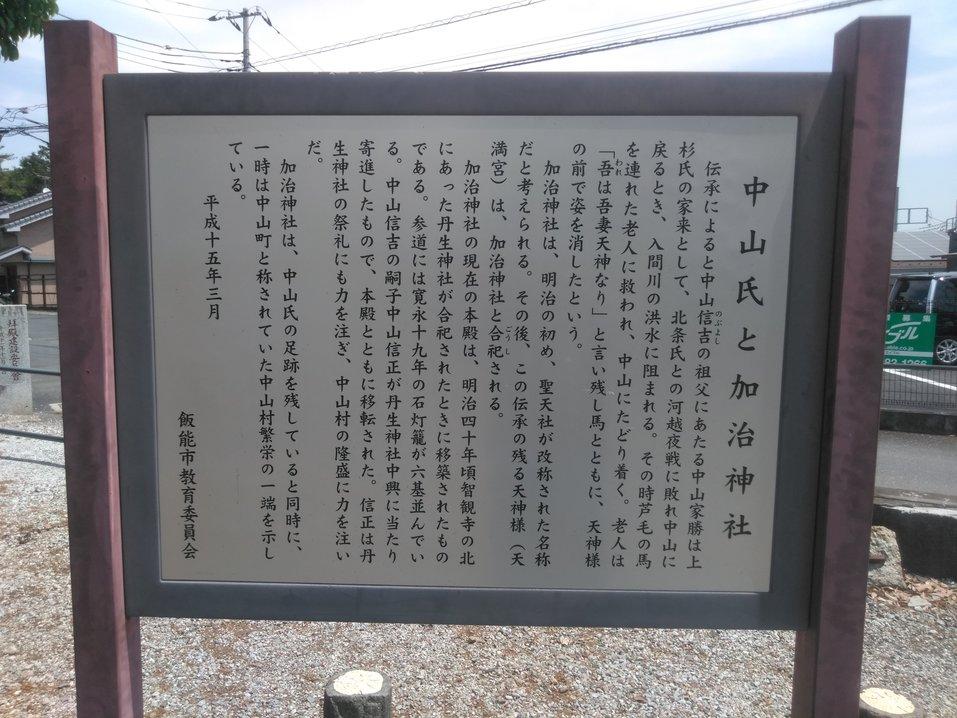 中山氏と加治神社
伝承によると中山信吉の祖父にあたる中山家勝は上
のぶよし
杉氏の家来として、北条氏との河越夜戦に敗れ中山に
戻るとき、入間川の洪水に阻まれる。その時芦毛の馬
を連れた老人に救われ、中山にたどり着く。老人は
われ
「吾は吾妻天神なり」と言い残し馬とともに、天神様
の前で姿を消したという。
加治神社は、明治の初め、聖天社が改称された名称
だと考えられる。その後、この伝承の残る天神様（天
満宮）は、加治神社と合祀される。
ごうし
加治神社の現在の本殿は、明治四十年頃智観寺の北
にあった丹生神社が合祀されたときに移築されたもの
である。参道には寛永十九年の石灯籠が六基並んでい
る。中山信吉の嗣子中山信正が丹生神社中興に当たり
寄進したもので、本殿とともに移転された。信正は丹
生神社の祭礼にも力を注ぎ、中山村の隆盛に力を注い
だ。
加治神社は、中山氏の足跡を残していると同時に、
一時は中山町と称されていた中山村繁栄の一端を示し
ている。
平成十五年三月
飯能市教育委員会
募集
ブル
able.co.jp
83-1266